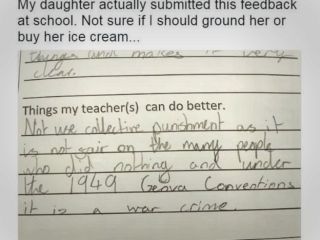 My daughter actually submitted this feedback
at school. Not sure if I should ground her or
buy her ice cream...
things and makes it very
clear.
Things my teacher(s) can do better.
Not use collective punishment as it
is not fair on the many people
who did nothing and under
the 1949 Genva Conventions
it is a war crime.